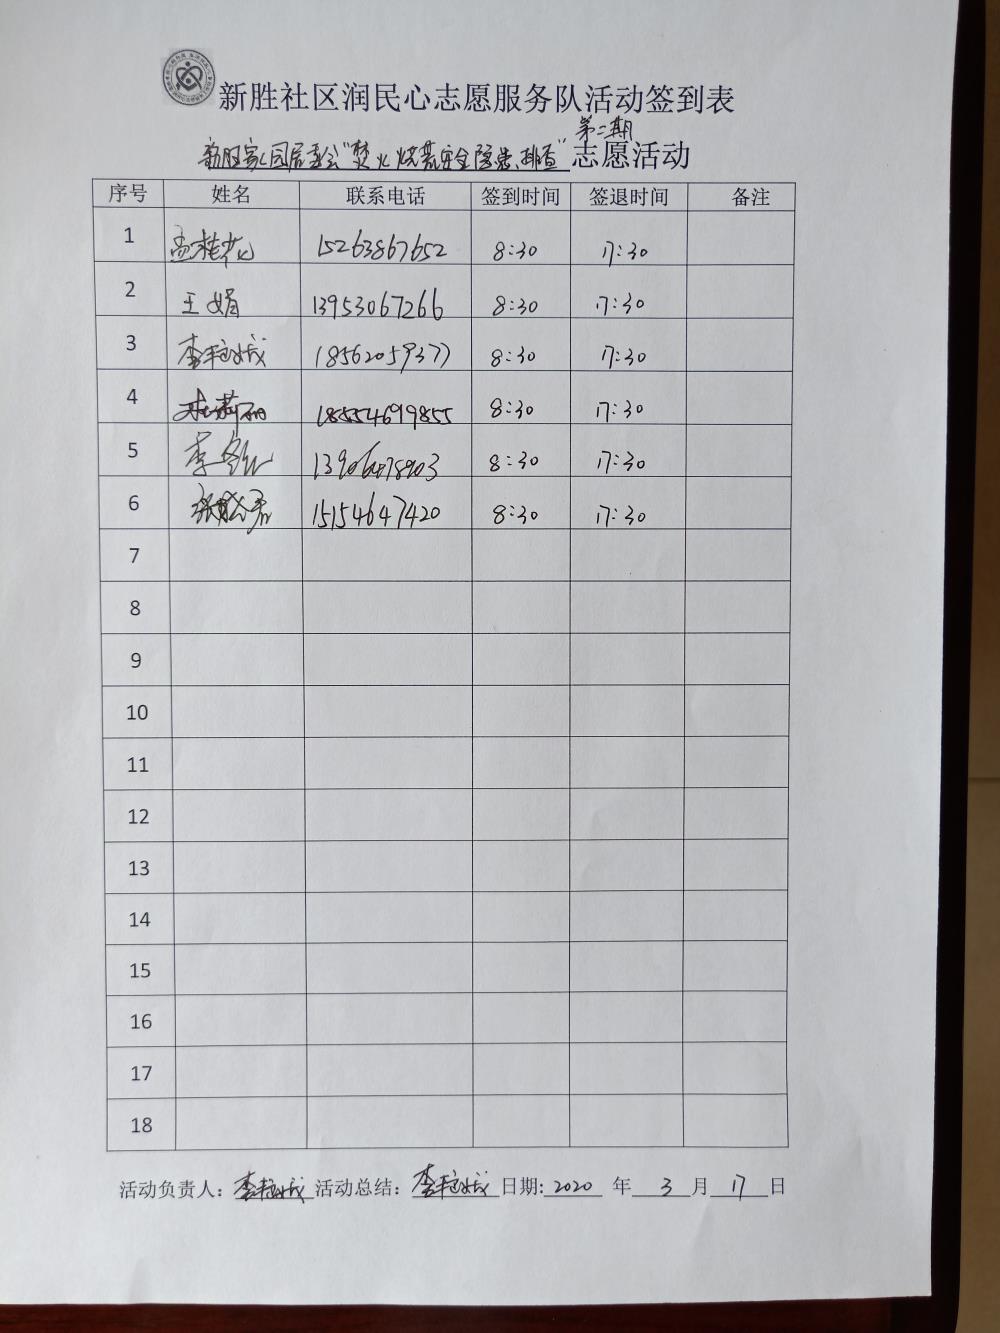 新胜社区润民心志愿服务队活动签到表
第二期
新胜家园居委会“焚火烧荒安全隐患排查”志愿活动
序号 姓名 联系电话 签到时间 签退时间 备注
1 孟桂花 15263867652 8:30 17:30
2 王娟 13953067266 8:30 17:30
3 李艳城 18562059377 8:30 17:30
4 杜莉丽 18554699855 8:30 17:30
5 李 8:30 17:30
6 15154647420 8:30 17:30
7
8
9
10
11
12
13
14
15
16
17
18
活动负责人：李艳城 活动总结：李艳城 日期: 2020 年 3 月 17 日